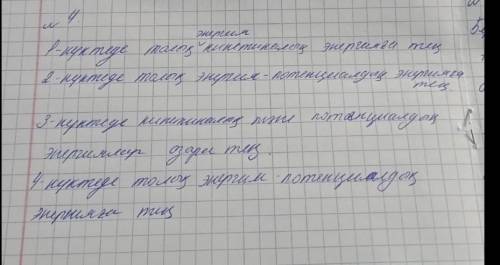 № 4
энергия
1-нүктеде толық кинетикалық энергияға тең
2-нүктеде толық энергия-потенциалдық энергияға
тең
3-нүктеде кинетикалық және потенциалдық
энергиялар өзара тең.
4-нүктеде толық энергия-потенциалдық
энергияға тең